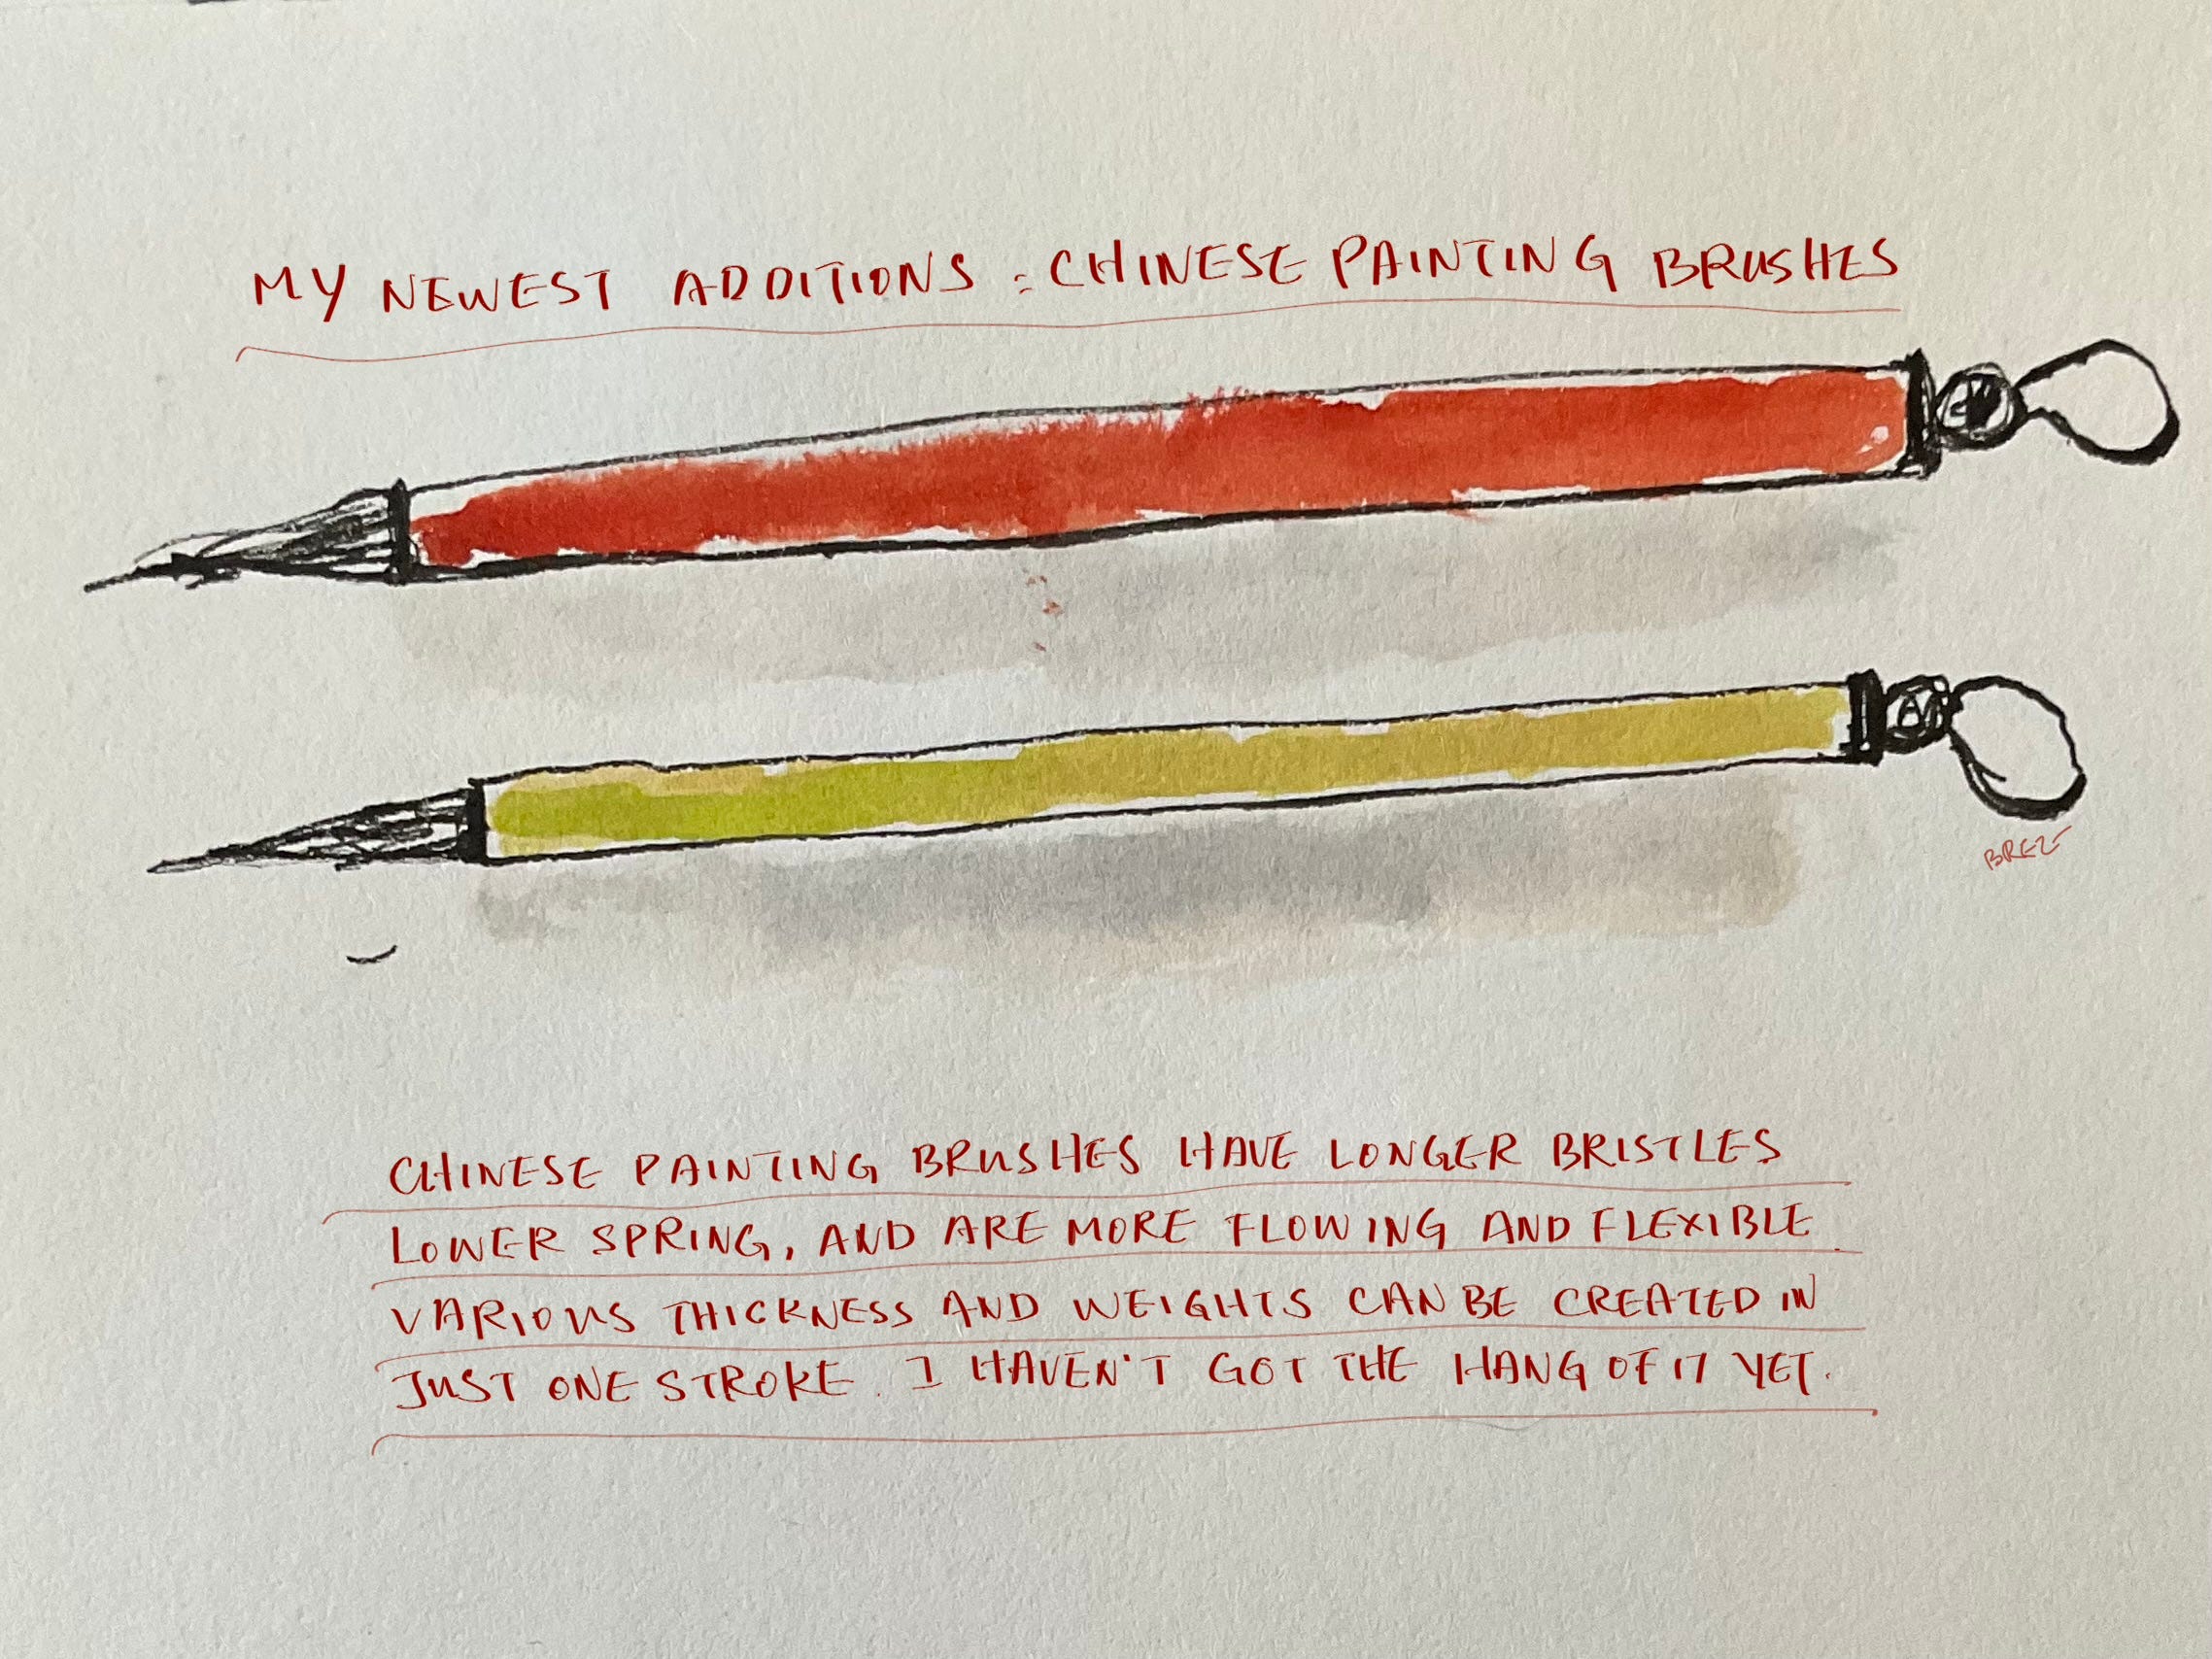 MY NEWEST ADDITIONS : CHINESE PAINTING BRUSHES
BREZE
CHINESE PAINTING BRUSHES HAVE LONGER BRISTLES
LOWER SPRING, AND ARE MORE FLOWING AND FLEXIBLE.
VARIOUS THICKNESS AND WEIGHTS CAN BE CREATED IN
JUST ONE STROKE. I HAVEN'T GOT THE HANG OF IT YET.